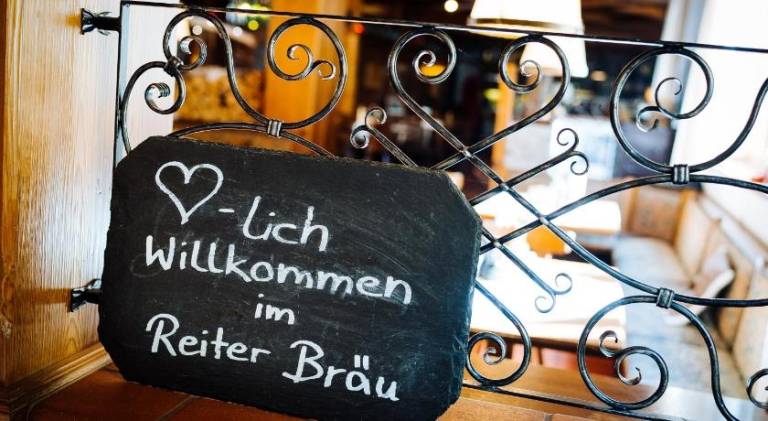 ♡-lich
Willkommen
im
Reiter Bräu